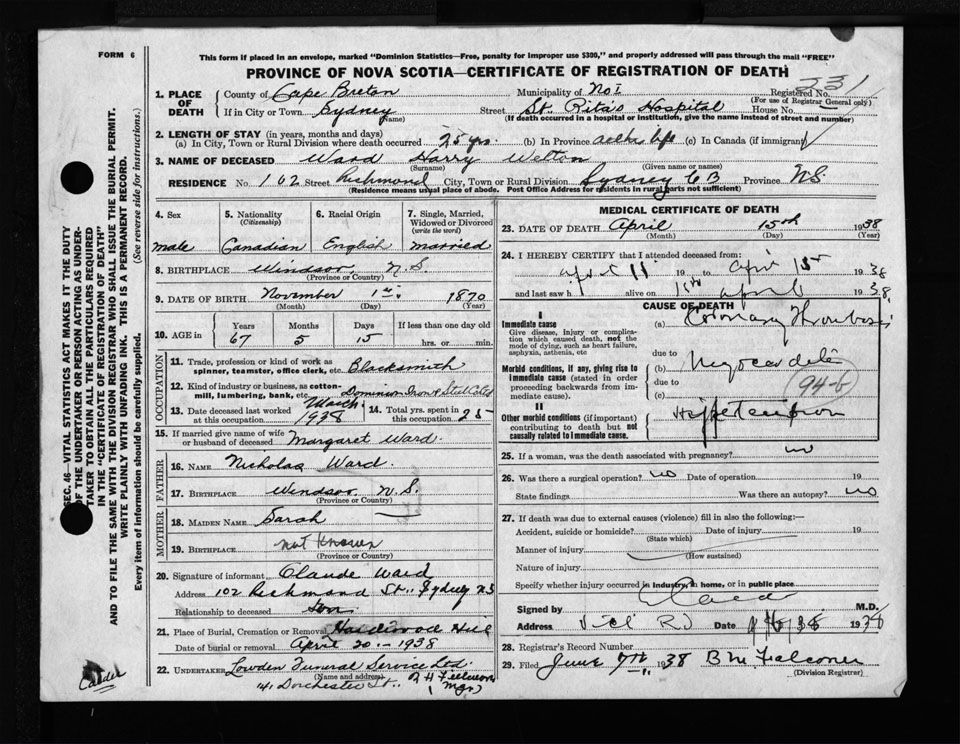 FORM 6
This form if placed in an envelope, marked "Dominion Statistics—Free, penalty for improper use $300," and properly addressed will pass through the mail "FREE"
PROVINCE OF NOVA SCOTIA—CERTIFICATE OF REGISTRATION OF DEATH
SEC. 46—VITAL STATISTICS ACT MAKES IT THE DUTY
OF THE UNDERTAKER OR PERSON ACTING AS UNDER-
TAKER TO OBTAIN ALL THE PARTICULARS REQUIRED
IN THE "CERTIFICATE OF REGISTRATION OF DEATH"
AND TO FILE THE SAME WITH THE DIVISION REGISTRAR WHO SHALL ISSUE THE BURIAL PERMIT.
WRITE PLAINLY WITH UNFADING INK. THIS IS A PERMANENT RECORD.
Every item of information should be carefully supplied. (See reverse side for instructions.)
1. PLACE OF DEATH
County of Cape Breton Municipality of No. 1 Registered No. 231
(For use of Registrar General only)
If in City or Town Sydney Street St. Rita's Hospital House No.
(Name) (If death occurred in a hospital or institution, give the name instead of street and number)
2. LENGTH OF STAY (in years, months and days)
(a) In City, Town or Rural Division where death occurred 25 yrs. (b) In Province all his life (c) In Canada (if immigrant)
3. NAME OF DECEASED Ward Harry Welton
(Surname) (Given name or names)
RESIDENCE No. 102 Street Richmond City, Town or Rural Division Sydney C B Province N.S
(Residence means usual place of abode. Post Office Address for residents in rural parts not sufficient)
4. Sex
male
5. Nationality
(Citizenship)
Canadian
6. Racial Origin
English
7. Single, Married,
Widowed or Divorced
(write the word)
married
8. BIRTHPLACE Windsor, N.S.
(Province or Country)
9. DATE OF BIRTH November 1st. 1870
(Month) (Day) (Year)
10. AGE in
Years Months Days If less than one day old
67 5 15 hrs. or min.
OCCUPATION
11. Trade, profession or kind of work as
spinner, teamster, office clerk, etc. Blacksmith
12. Kind of industry or business, as cotton-
mill, lumbering, bank, etc. Dominion Iron & Steel Co Ltd
13. Date deceased last worked
at this occupation March 1938
14. Total yrs. spent in
this occupation 25
15. If married give name of wife
or husband of deceased Margaret Ward.
FATHER
16. NAME Nicholas Ward.
17. BIRTHPLACE Windsor N.S.
(Province or Country)
MOTHER
18. MAIDEN NAME Sarah —
19. BIRTHPLACE not known
(Province or Country)
20. Signature of informant Claude Ward
Address 102 Richmond St., Sydney NS
Relationship to deceased Son
21. Place of Burial, Cremation or Removal Hardwood Hill
Date of burial or removal April 20 - 1938
22. UNDERTAKER Lowden Funeral Service Ltd.
(Name and address)
141 Dorchester St.,
(Mgr)
Calder
MEDICAL CERTIFICATE OF DEATH
23. DATE OF DEATH April 15th 1938
(Month) (Day) (Year)
24. I HEREBY CERTIFY that I attended deceased from:
April 11 19 to April 15 1938
and last saw h alive on 15th April 1938,
CAUSE OF DEATH
I
Immediate cause
Give disease, injury or complication which caused death, not the mode of dying, such as heart failure, asphyxia, asthenia, etc
(a) Coronary Thrombosis
due to
Morbid conditions, if any, giving rise to immediate cause (stated in order proceeding backwards from immediate cause).
(b) Myocarditis
due to
(c) 94-b
II
Other morbid conditions (if important) contributing to death but not causally related to immediate cause.
Hypertension
25. If a woman, was the death associated with pregnancy? no
26. Was there a surgical operation? no Date of operation 19
State findings Was there an autopsy? no
27. If death was due to external causes (violence) fill in also the following:—
Accident, suicide or homicide? Date of injury 19
(State which)
Manner of injury
(How sustained)
Nature of injury
Specify whether injury occurred in industry, in home, or in public place
Signed by M.D.
Address Date 1938
28. Registrar's Record Number
29. Filed June 7th, 1938 B M Falconer
(Division Registrar)